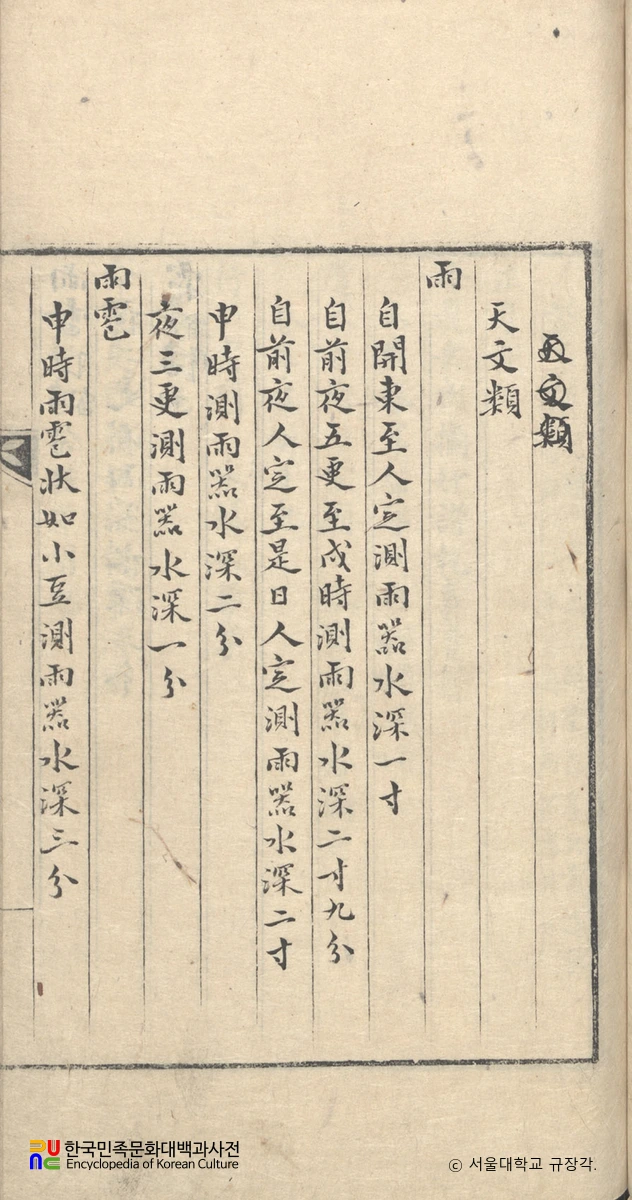 天文類
雨
自開東至人定測雨器水深一寸
自前夜五更至戌時測雨器水深二寸九分
自前夜人定至是日人定測雨器水深二寸
申時測雨器水深二分
夜三更測雨器水深一分
雨雹
申時雨雹狀如小豆測雨器水深三分
한국민족문화대백과사전
Encyclopedia of Korean Culture
© 서울대학교 규장각.